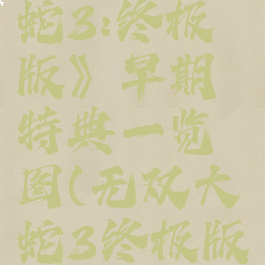 蛇3:终极
版》早期
特典一览
图(无双大
蛇3终极版